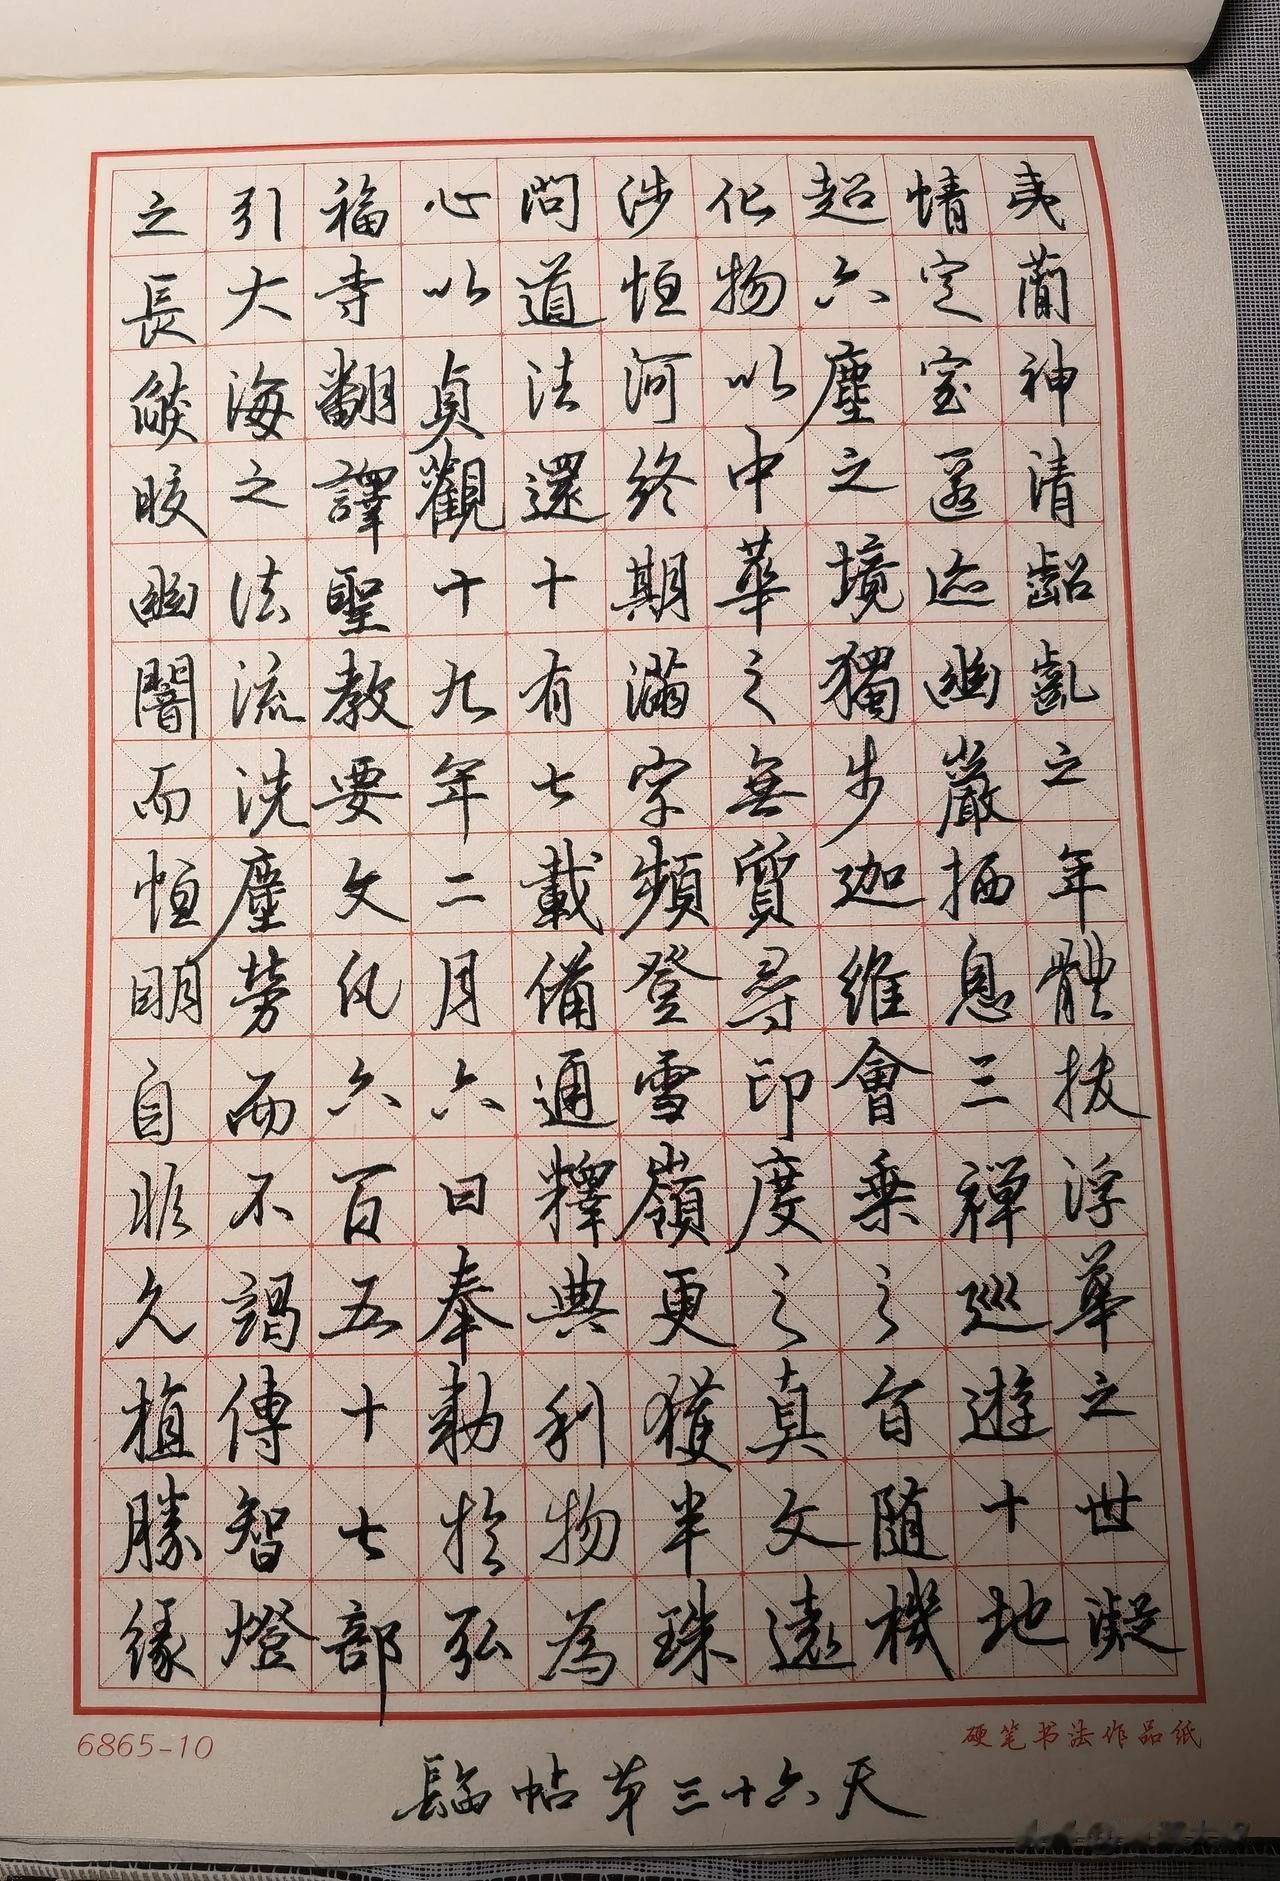 夷蕳神清齠齔之年體拔浮華之世凝
情定室匿迹幽巖栖息三禪巡遊十地
超六塵之境獨步迦維會乘之旨隨機
化物以中華之無質尋印度之真文遠
涉恒河終期滿字頻登雪嶺更獲半珠
問道法還十有七載備通釋典利物為
心以貞觀十九年二月六日奉勑於弘
福寺翻譯聖教要文凡六百五十七部
引大海之法流洗塵勞而不竭傳智燈
之長燄皎幽闇而恒明自非久植勝緣
6865-10
硬笔书法作品纸
臨帖第三十六天